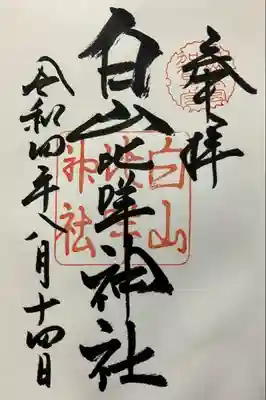 奉拝
白山比咩神社
令和四年八月十四日
白山
神社